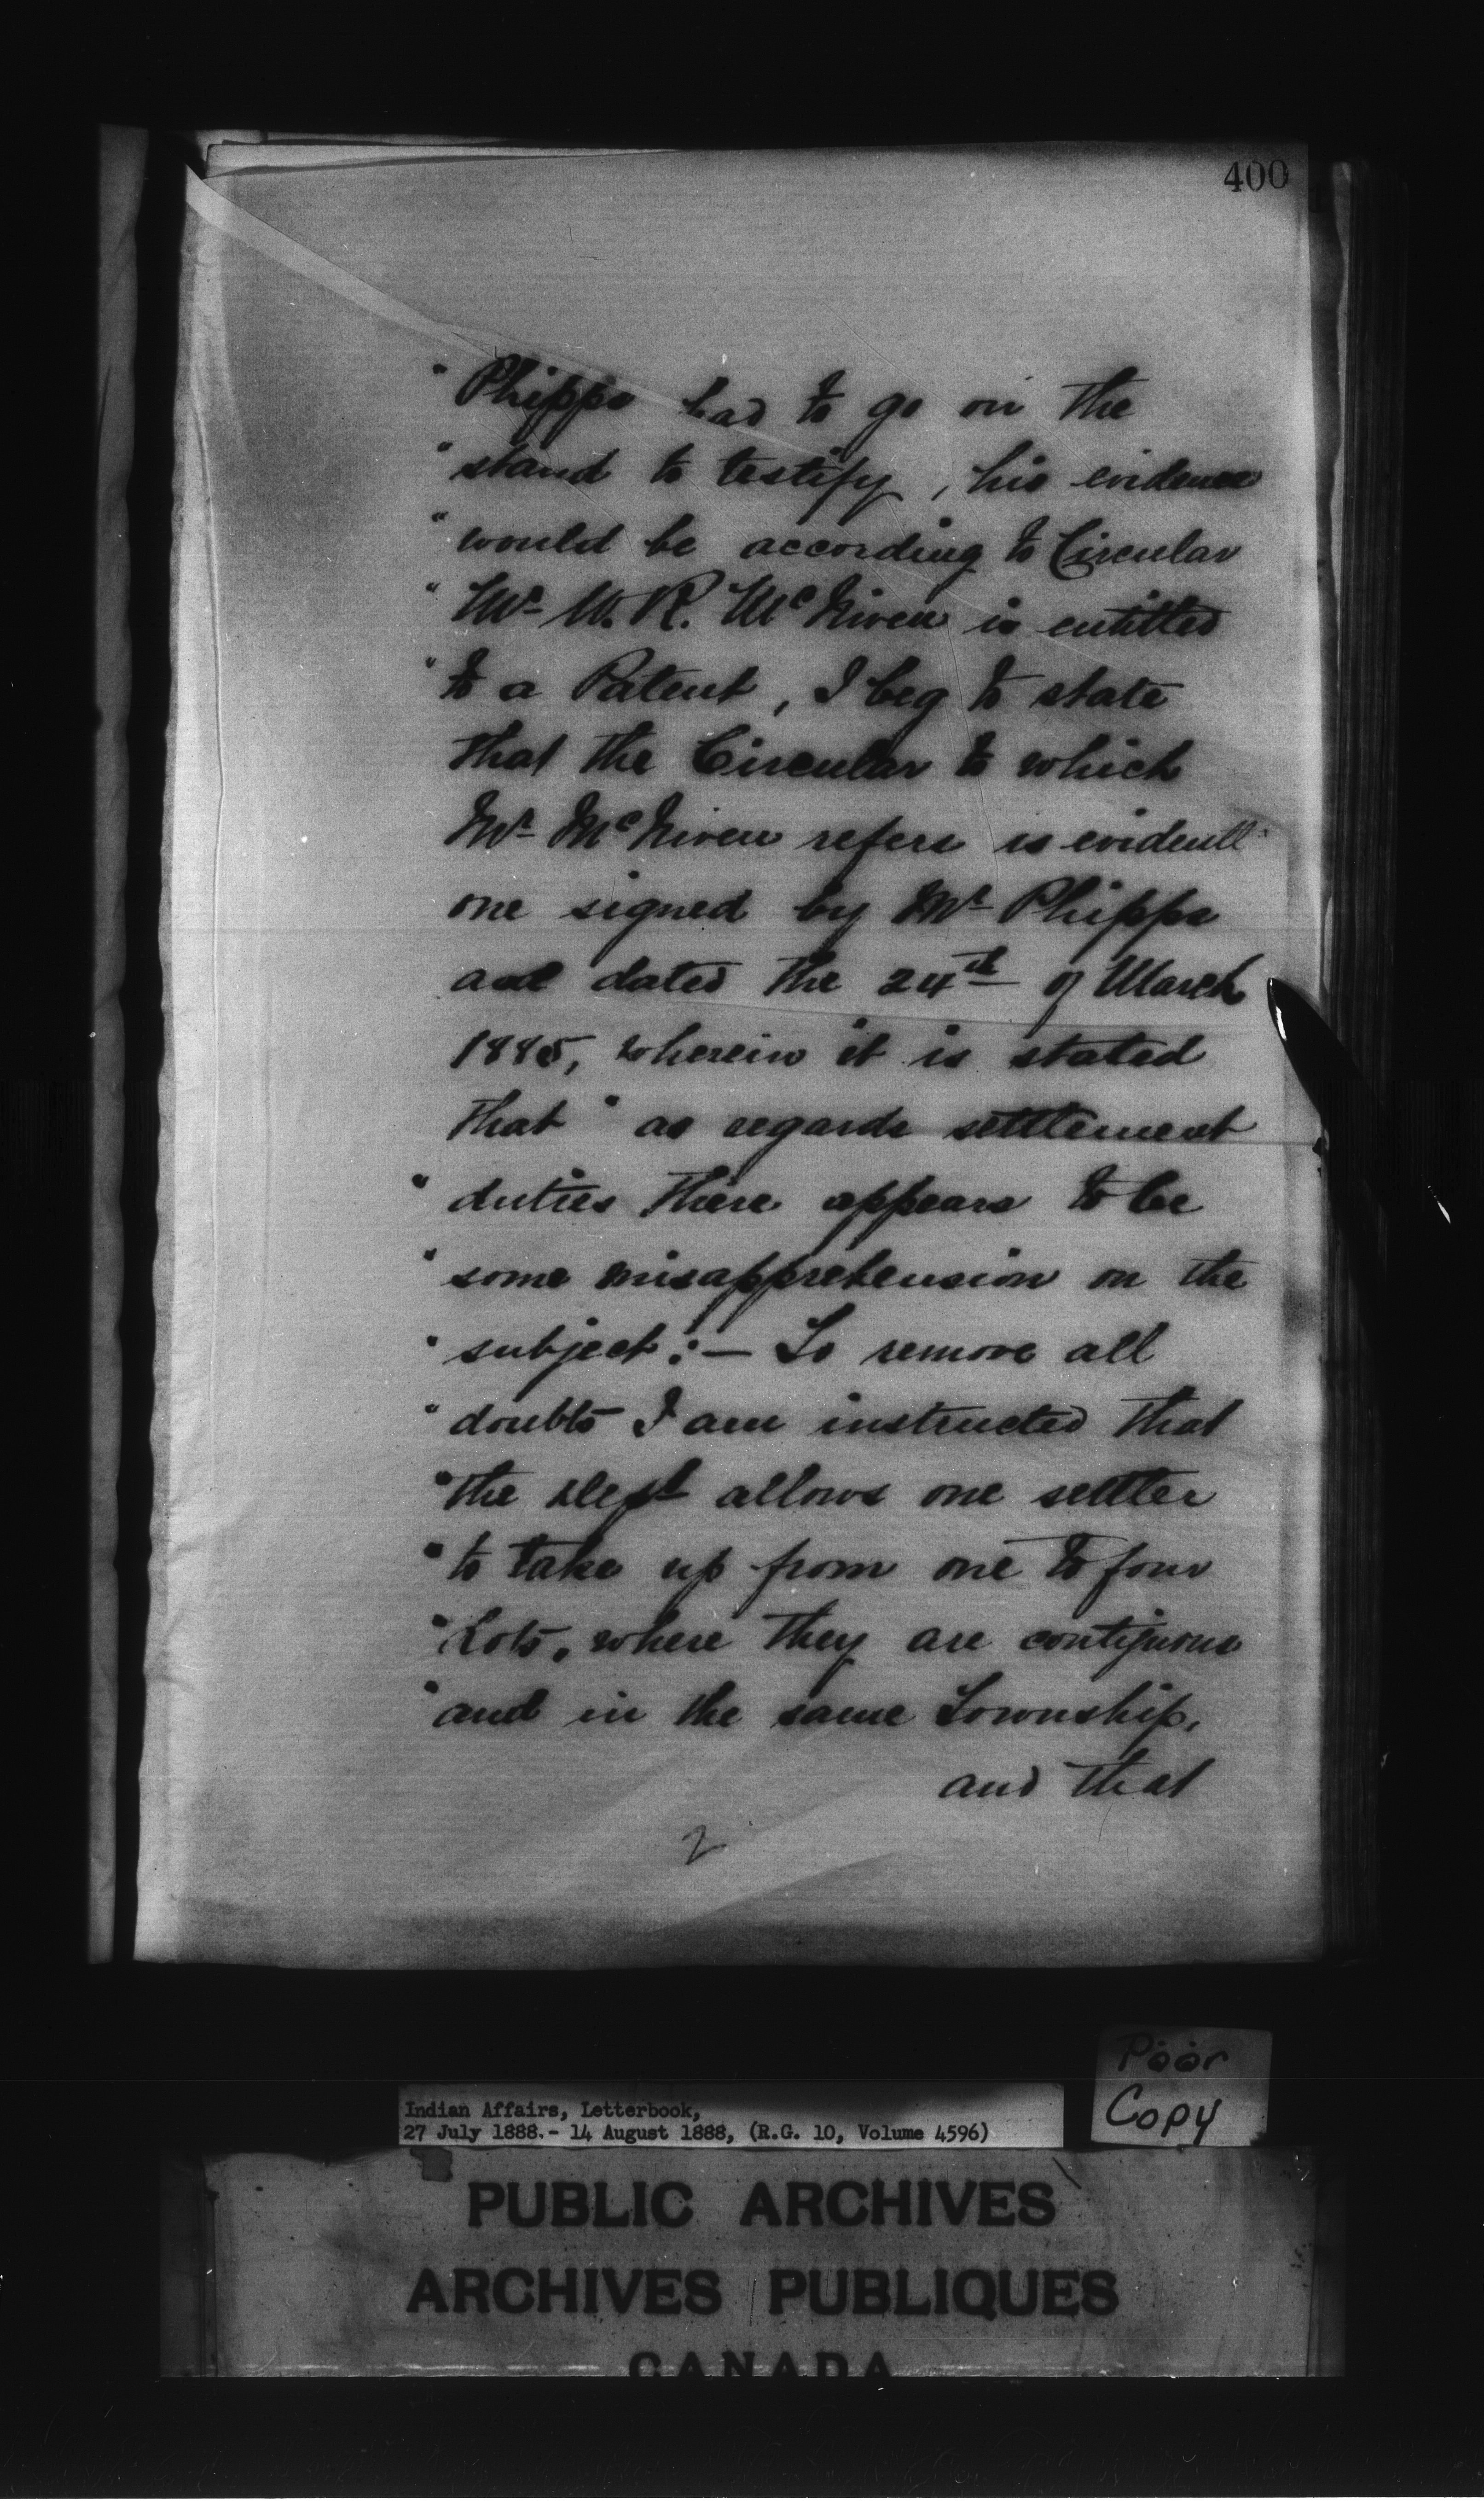 400
" Phipps had to go on the
" stand to testify, his evidence
" would be according to Circular
" Mr. W. R. McNiven is entitled
" to a Patent, I beg to state
that the Circular to which
Mr. McNiven refers is evidentl
one signed by Mr. Phipps
and dated the 24th of March
1885, wherein it is stated
that " as regards settlement
" duties there appears to be
" some misapprehension on the
" subject:— To remove all
" doubts I am instructed that
" the Dept allows one settler
" to take up from one to four
" Lots, where they are contiguous
" and in the same Township,
and that
2
Poor
Copy
Indian Affairs, Letterbook,
27 July 1888.- 14 August 1888, (R.G. 10, Volume 4596)
PUBLIC ARCHIVES
ARCHIVES PUBLIQUES
CANADA